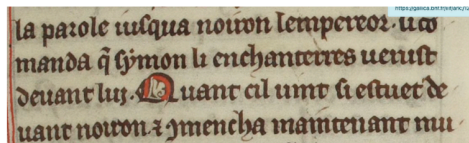 https://gallica.bnf.fr/ark:/12
la parole iusqua noiron lempereor. si co
manda q̃ symon li enchanterres uenist
deuant luy. Quant cil uint si estuet de
uant noiron ⁊ ꝯmencha maintenant mu